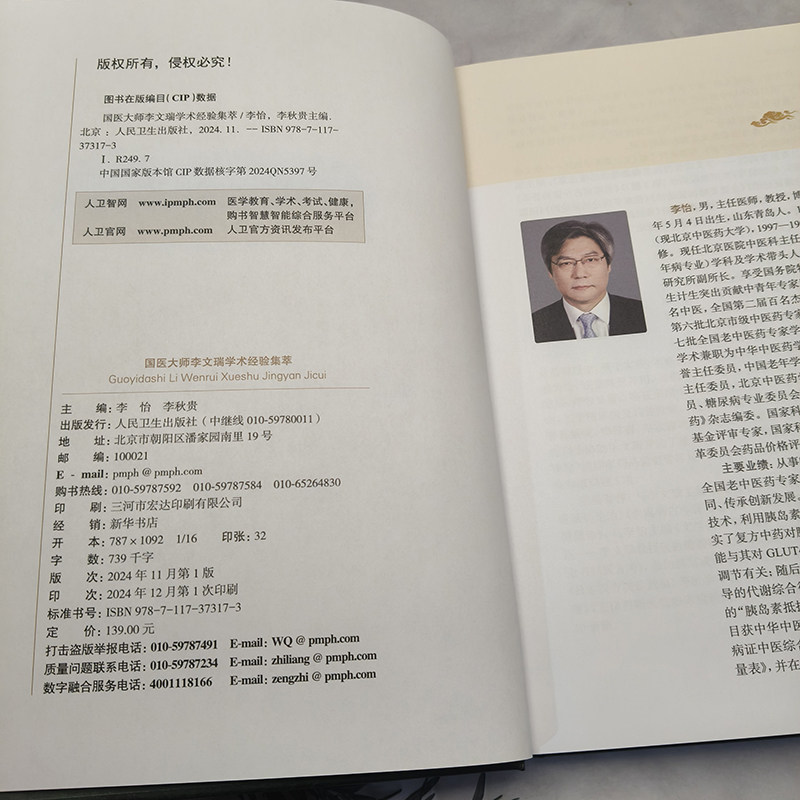 版权所有，侵权必究！
图书在版编目（CIP）数据
国医大师李文瑞学术经验集萃 / 李怡，李秋贵主编.
北京 ： 人民卫生出版社，2024. 11. -- ISBN 978-7-117-
37317-3
Ⅰ. R249. 7
中国国家版本馆 CIP 数据核字第 2024QN5397 号
人卫智网 www.ipmph.com 医学教育、学术、考试、健康，
购书智慧智能综合服务平台
人卫官网 www.pmph.com 人卫官方资讯发布平台
国医大师李文瑞学术经验集萃
Guoyidashi Li Wenrui Xueshu Jingyan Jicui
主 编：李 怡 李秋贵
出版发行：人民卫生出版社（中继线 010-59780011）
地 址：北京市朝阳区潘家园南里 19 号
邮 编：100021
E - mail：pmph @ pmph.com
购书热线：010-59787592 010-59787584 010-65264830
印 刷：三河市宏达印刷有限公司
经 销：新华书店
开 本：787 × 1092 1/16 印张：32
字 数：739 千字
版 次：2024 年 11 月第 1 版
印 次：2024 年 12 月第 1 次印刷
标准书号：ISBN 978-7-117-37317-3
定 价：139.00 元
打击盗版举报电话：010-59787491 E-mail：WQ @ pmph.com
质量问题联系电话：010-59787234 E-mail：zhiliang @ pmph.com
数字融合服务电话：4001118166 E-mail：zengzhi @ pmph.com
李怡，男，主任医师，教授，博
年 5 月 4 日出生，山东青岛人。
（现北京中医药大学），1997—19
修。现任北京医院中医科主任
年病专业）学科及学术带头人
研究所副所长。享受国务院特
生计生突出贡献中青年专家
名中医，全国第二届百名杰
第六批北京市级中医药专家
七批全国老中医药专家学
学术兼职为中华中医药学
誉主任委员，中国老年学
主任委员，北京中医药
员、糖尿病专业委员会
药》杂志编委。国家科
基金评审专家，国家科
革委员会药品价格评
主要业绩：从事
全国老中医药专家
同、传承创新发展。
技术，利用胰岛素
实了复方中药对胰
能与其对 GLUT
调节有关；随后
导的代谢综合征
的“胰岛素抵抗
目获中华中医
病证中医综合
量表》，并在